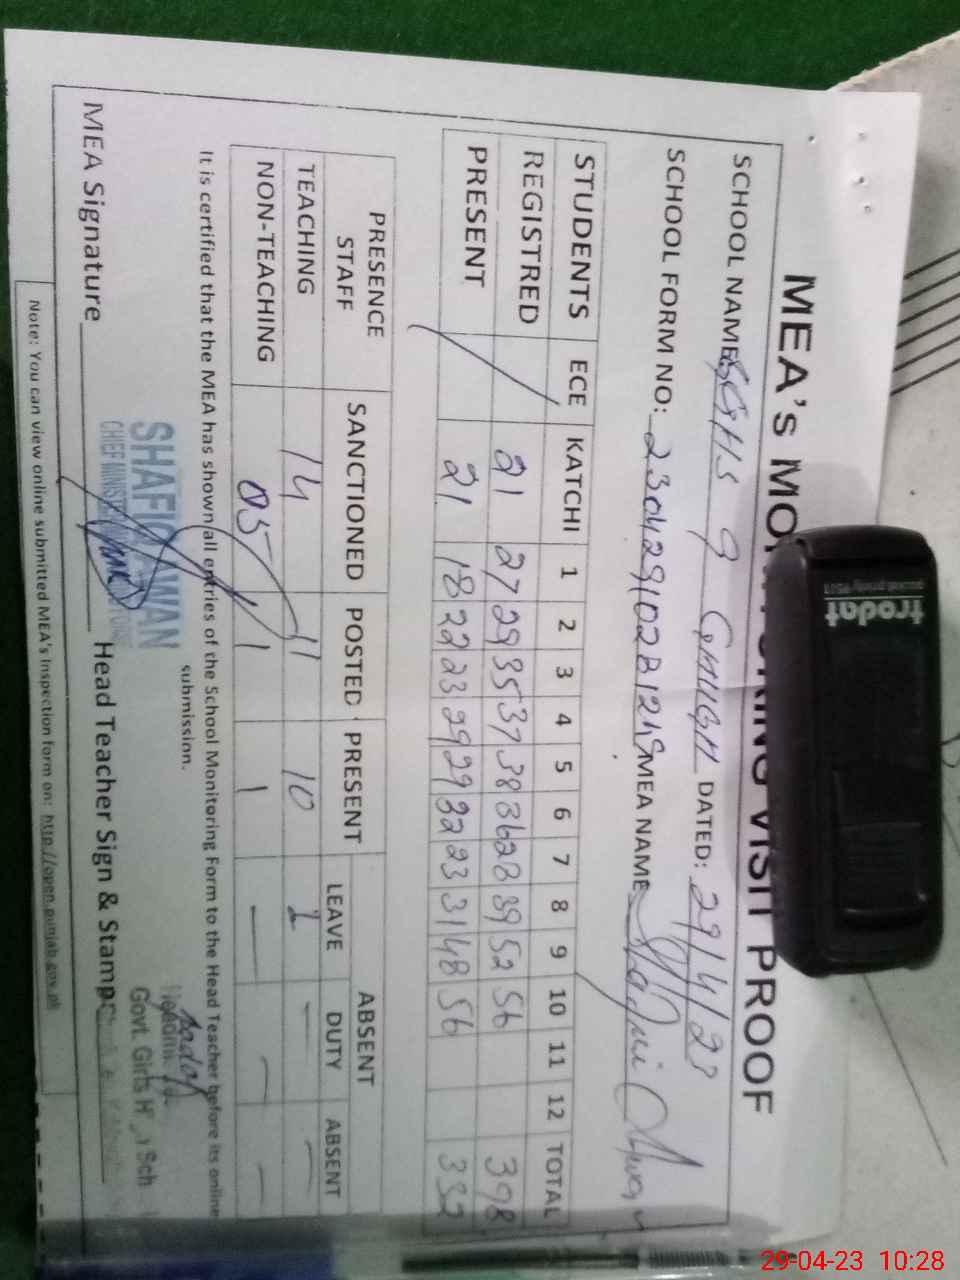 MEA's MO RING VISIT PROOF
SCHOOL NAME: GGHS 9 DATED: 29/4/23
SCHOOL FORM NO: MEA NAME
STUDENTS ECE KATCHI 1 2 3 4 5 6 7 8 9 10 11 12 TOTAL
REGISTRED 21 27 29 35 37 38 36 28 39 52 56 398
PRESENT 21 18 22 23 29 29 32 23 31 48 56 332
PRESENCE STAFF SANCTIONED POSTED PRESENT ABSENT
LEAVE DUTY ABSENT
TEACHING 14 11 10 1 — —
NON-TEACHING 05 1 1 — — —
It is certified that the MEA has shown all entries of the School Monitoring Form to the Head Teacher before its online
submission.
SHAFIQ AWAN
CHIEF MINISTER
MEA Signature Head Teacher Sign & Stamp:
Govt. Girls H Sch
Note: You can view online submitted MEA's inspection form on: http://open.punjab.gov.pk
trodat
29-04-23 10:28